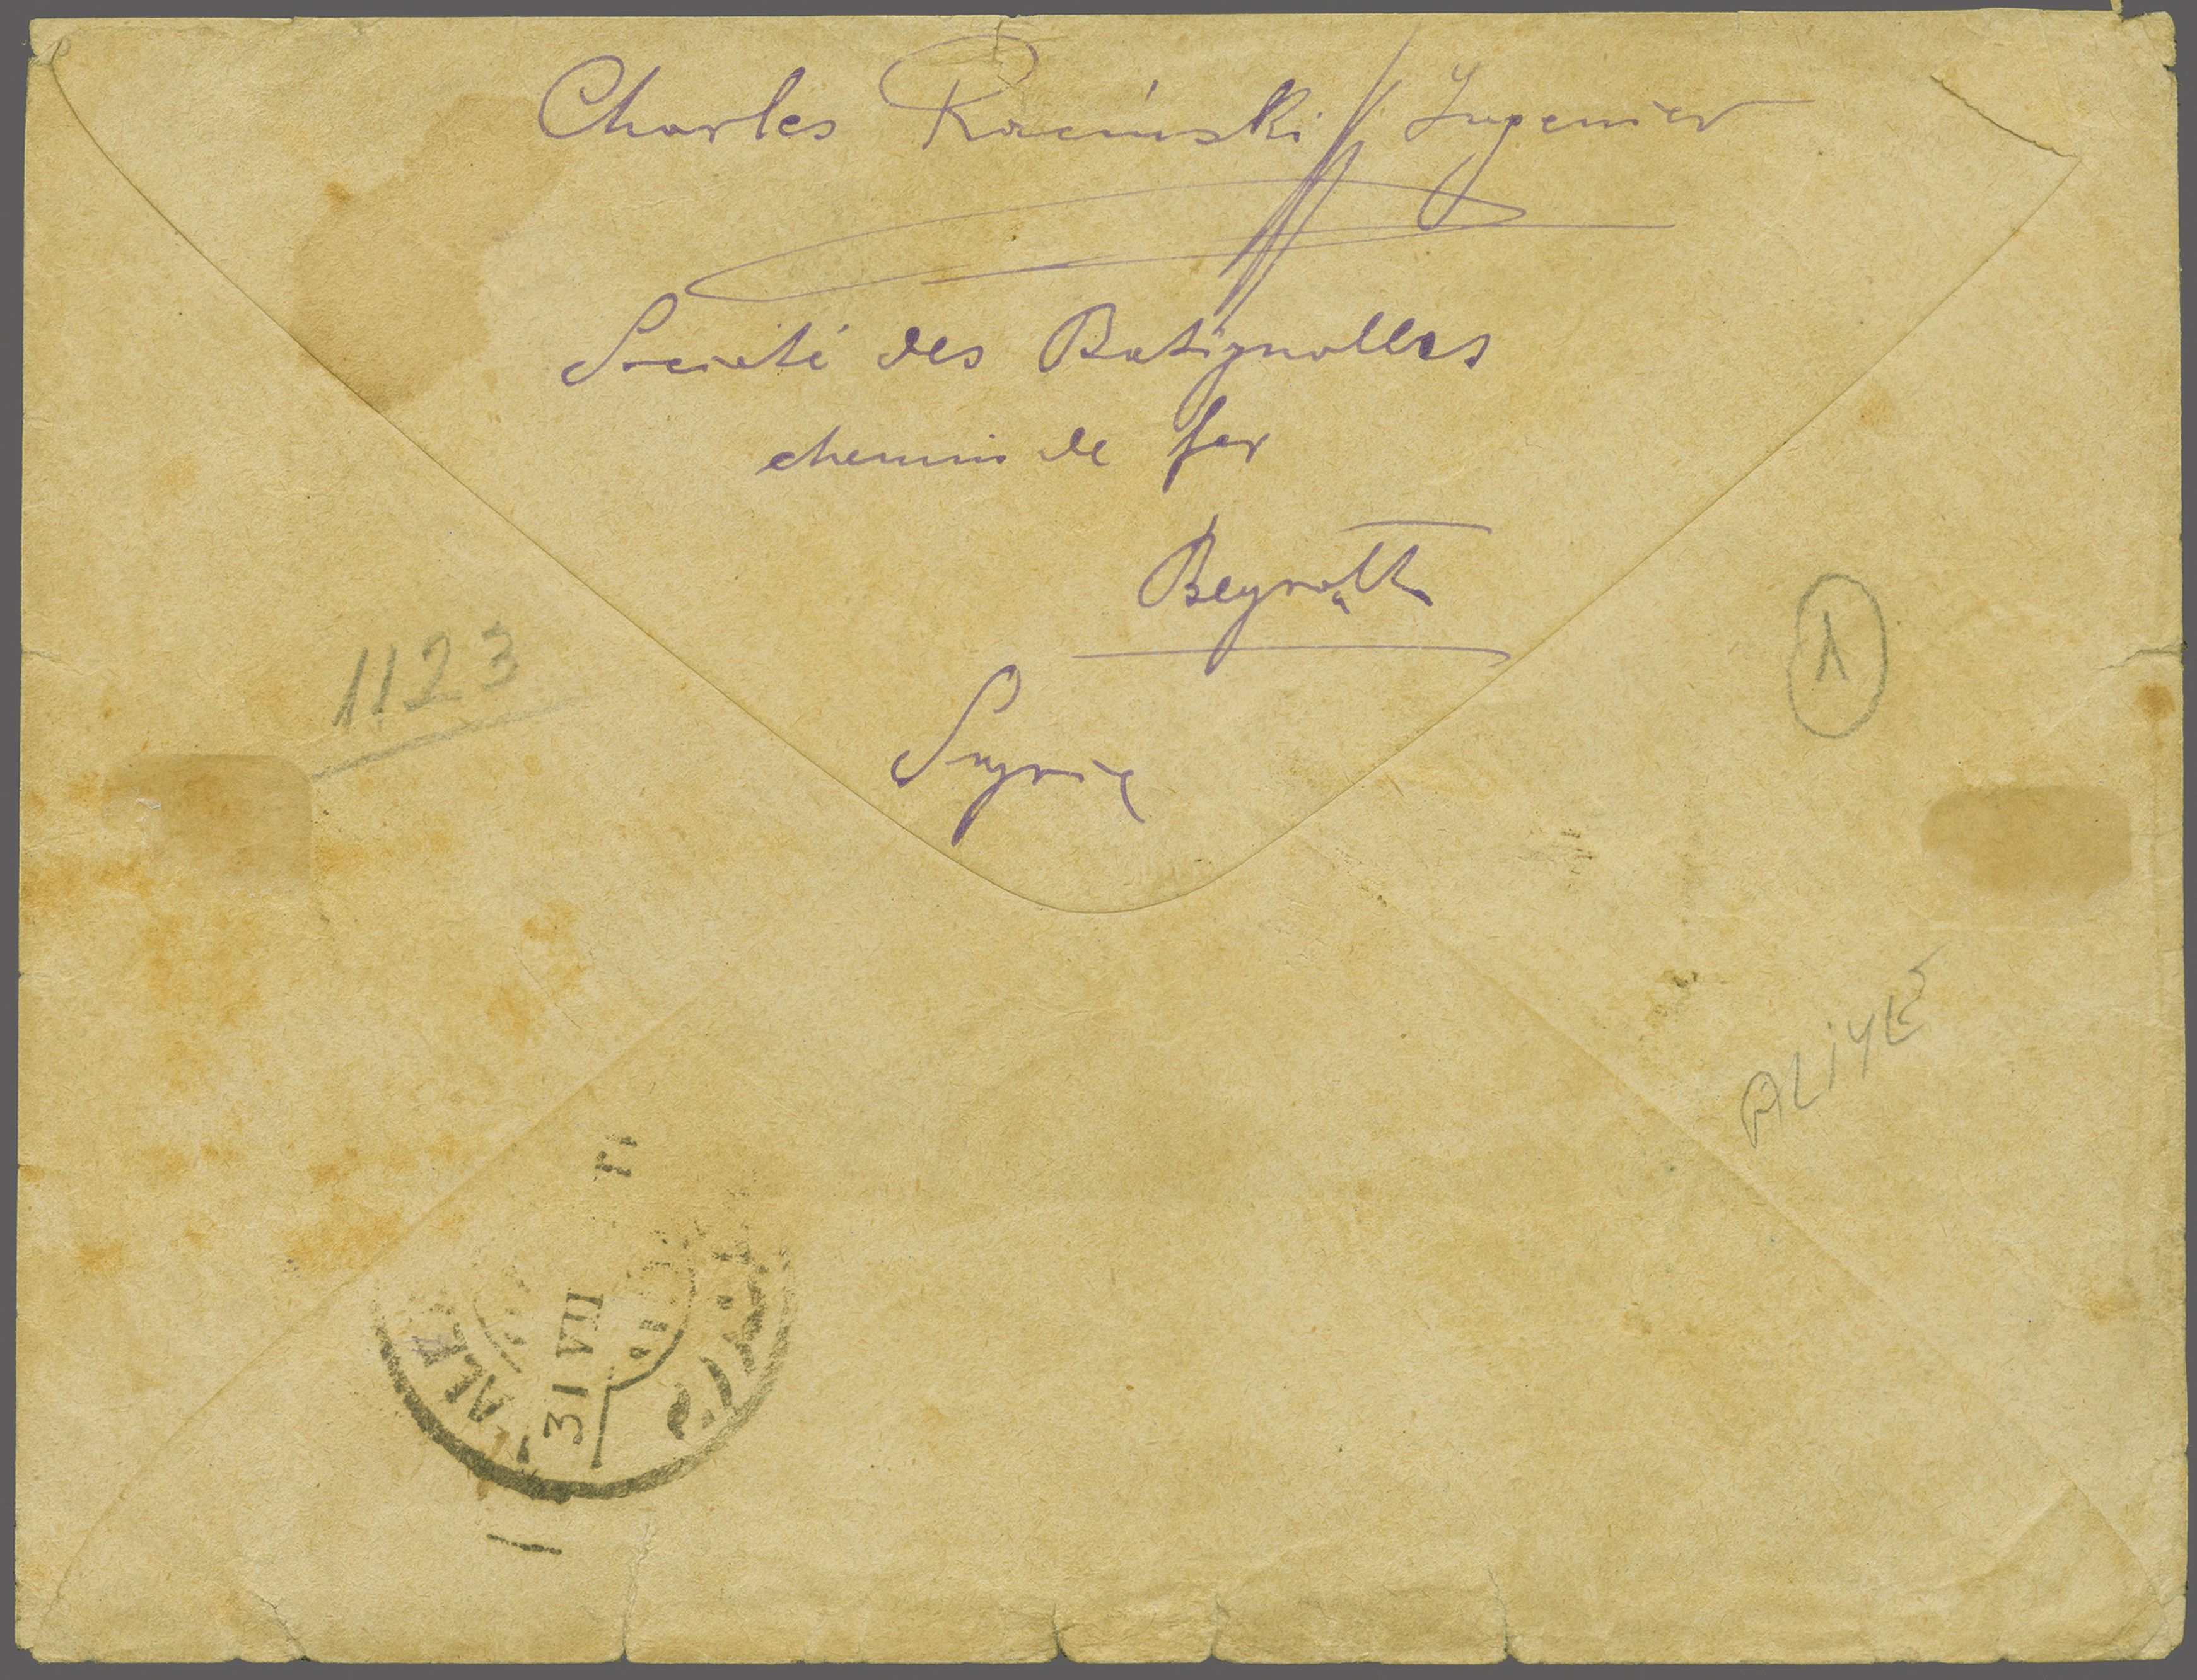 Charles Racinski Ingenier
Société des Batignolles
chemin de fer
Beyrouth
Syrie
1123
1
ALIYÉ
31 VII